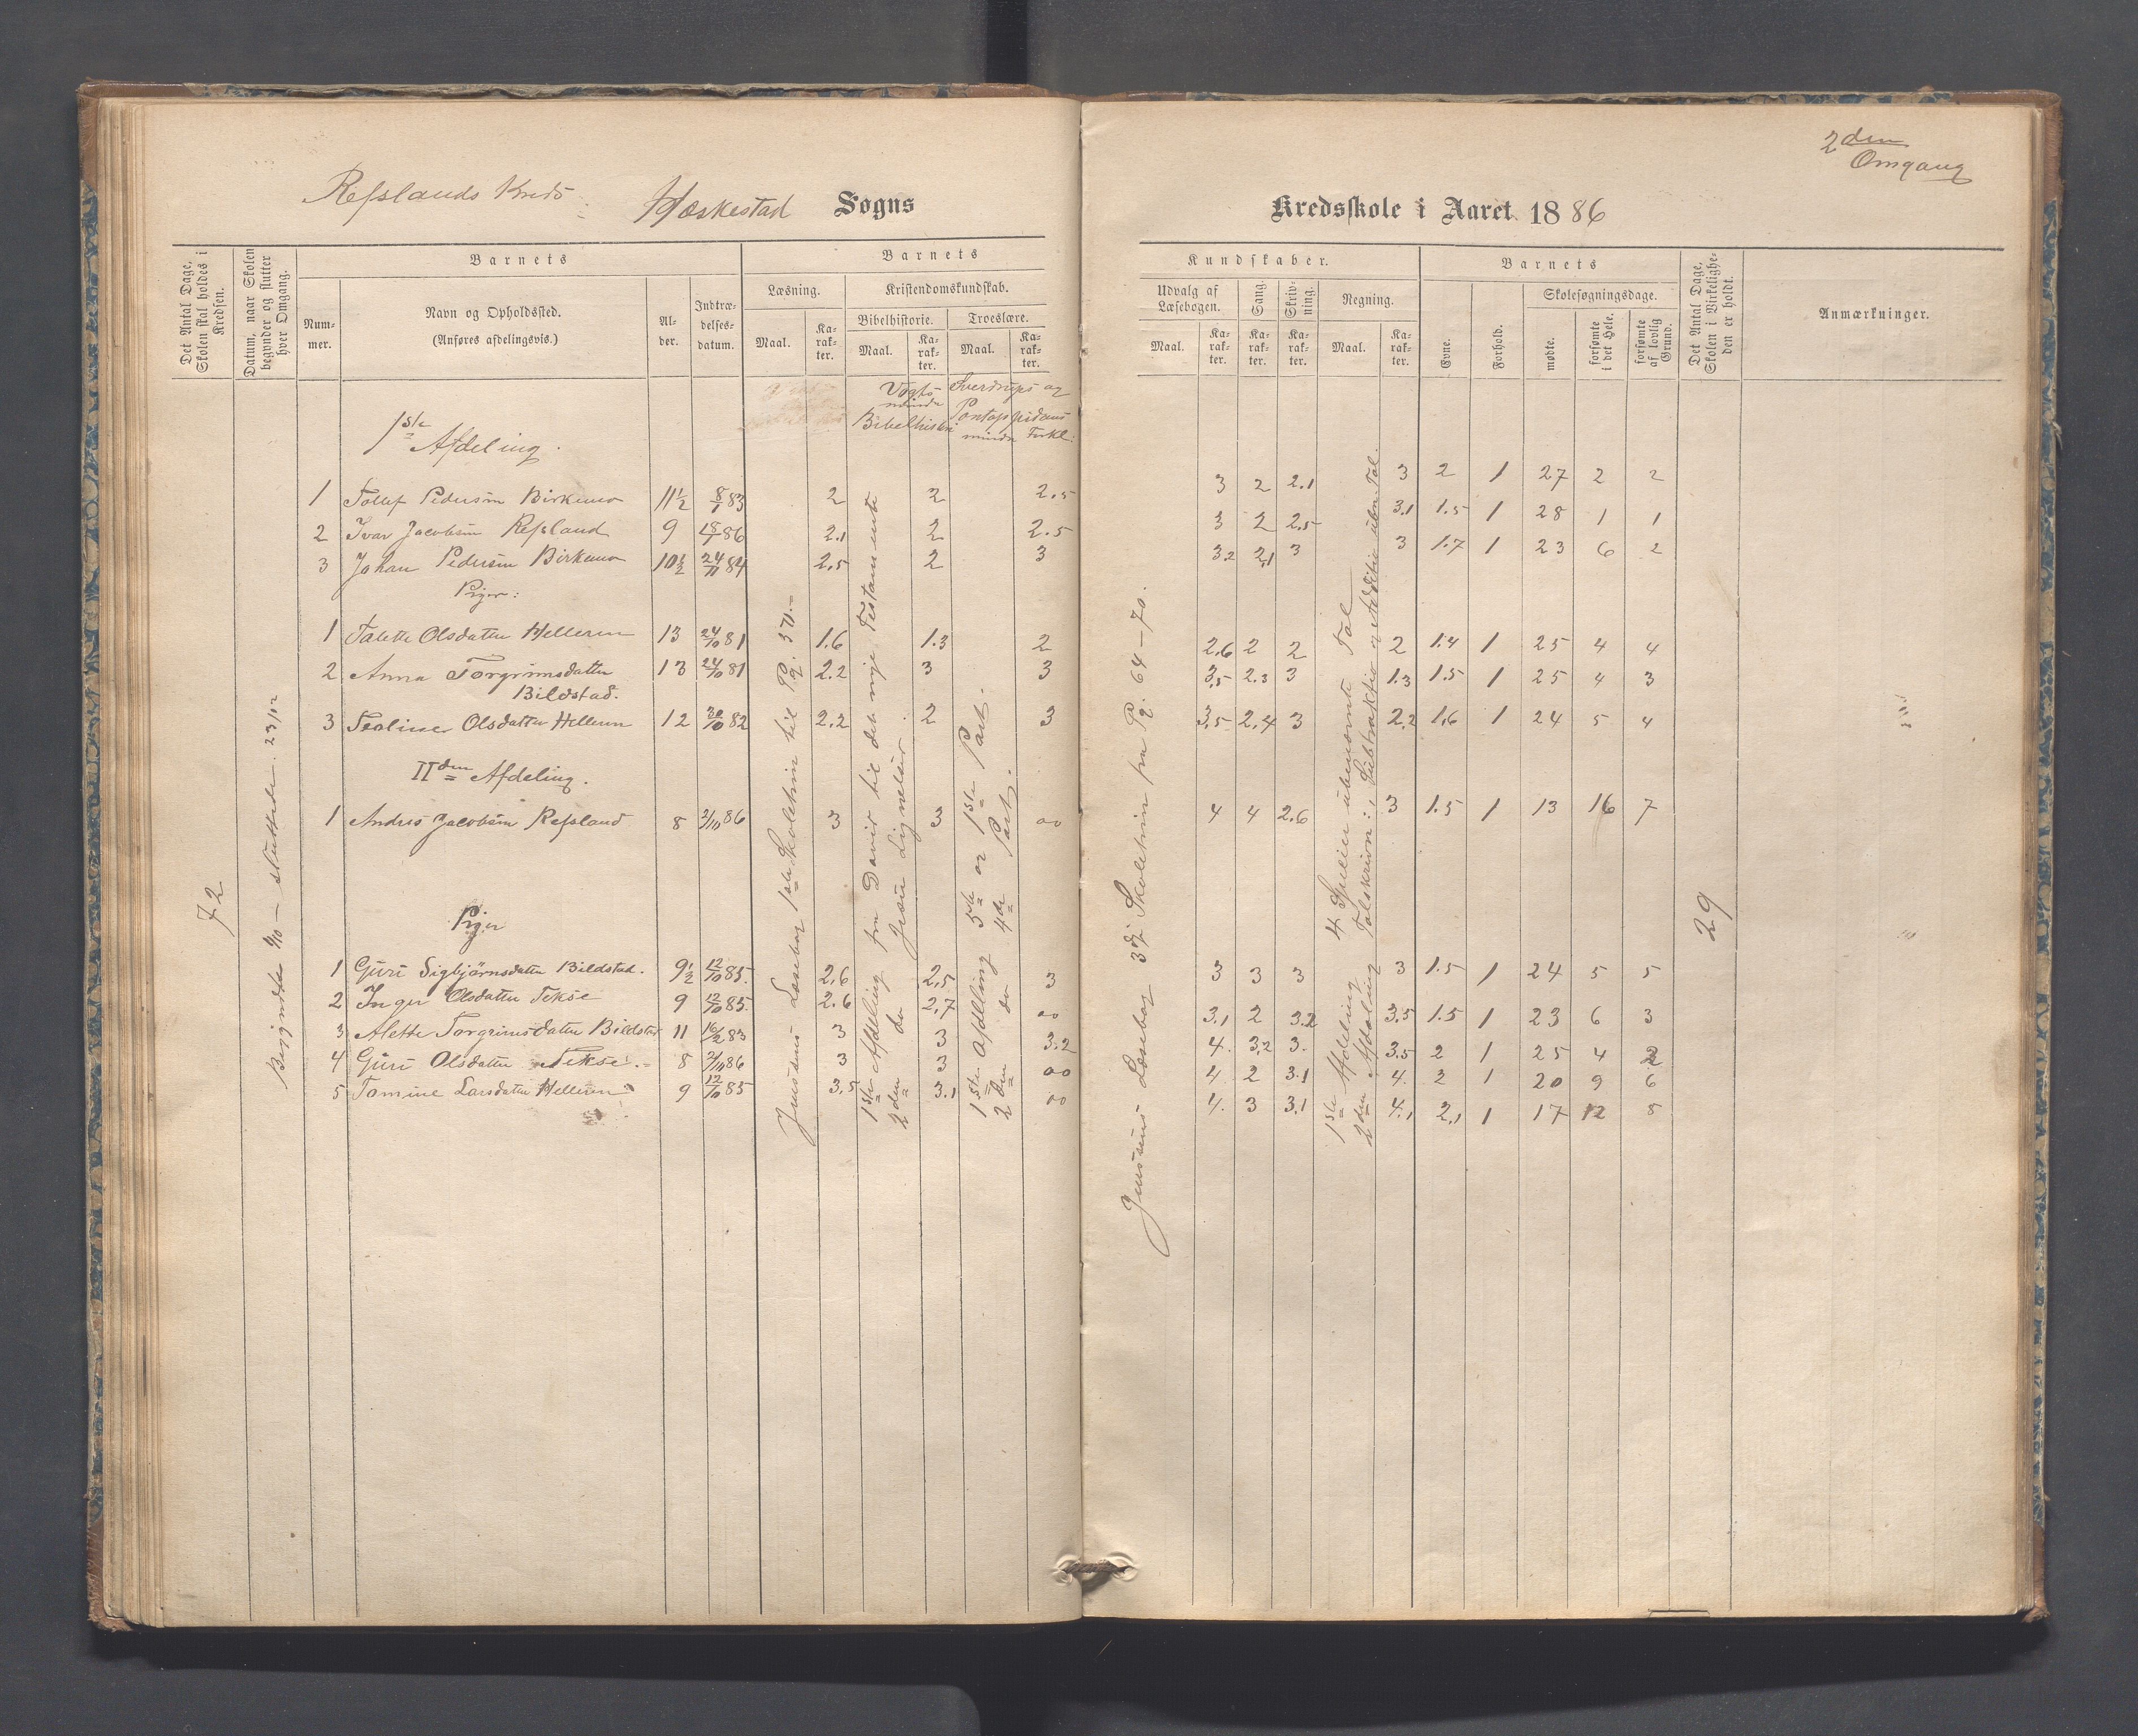 2den
Omgang
Refslands Kreds. Hæskestad Sogns
Kredsskole i Aaret 1886
Det Antal Dage, Skolen skal holdes i Kredsen.
Datum, naar Skolen begynder og slutter hver Omgang.
Barnets
Nummer.
Navn og Opholdssted.
(Anføres afdelingsvis.)
Alder.
Indtrædelsesdatum.
Barnets
Læsning.
Maal.
Karakter.
Kristendomskundskab.
Bibelhistorie.
Maal.
Karakter.
Troeslære.
Maal.
Karakter.
Kundskaber.
Udvalg af Læsebogen.
Maal.
Karakter.
Sang.
Karakter.
Skrivning.
Karakter.
Regning.
Maal.
Karakter.
Barnets
Evne.
Forhold.
Skolesøgningsdage.
mødte.
forsømte i det Hele.
forsømte af lovlig Grund.
Det Antal Dage, Skolen i Virkeligheden er holdt.
Anmærkninger.
Vogts mindre Bibelhistori
Sverdrups og Pontoppidans mindre Forkl:
1ste Afdeling.
1 Tollef Pedersen Birkemo 11½ 8/1 83 2 2 2.5 3 2 2.1 3 2 1 27 2 2
2 Ivar Jacobsen Refsland 9 18/1 86 2.1 2 2.5 3 2 2.5 3.1 1.5 1 28 1 1
3 Johan Pedersen Birkemo 10½ 24/11 84 2.5 2 3 3.2 2.1 3 3 1.7 1 23 6 2
Piger:
1 Talette Olsdatter Helleren 13 24/10 81 1.6 1.3 2 2.6 2 2 2 1.4 1 25 4 4
2 Anna Torgrimsdatter Bildstad. 13 24/10 81 2.2 3 3 3.5 2.3 3 1.3 1.5 1 25 4 3
3 Teoline Olsdatter Helleren 12 30/10 82 2.2 2 3 3.5 2.4 3 2.2 1.6 1 24 5 4
IIden Afdeling.
1 Andres Jacobsen Refsland 8 2/10 86 3 3 00 4 4 2.6 3 1.5 1 13 16 7
Piger
1 Guri Sigbjørnsdatter Bildstad. 9½ 12/10 85. 2.6 2.5 3 3 3 3 3 1.5 1 24 5 5
2 Inger Olsdatter Tekse 9 12/10 85. 2.6 2.7 00 3.1 2 3.2 3.5 1.5 1 23 6 3
3 Alette Torgrimsdatter Bildstad 11 16/2 83 3 3 3.2 4. 3.2 3. 3.5 2 1 25 4 2
4 Guri Olsdatter Tekse. 8 2/10 86 3 3 00 4. 2 3.1 4. 2 1 20 9 6
5 Tomine Larsdatter Helleren 9 12/10 85 3.5 3.1 00 4. 3 3.1 4.1 2.1 1 17 12 8
72
Begyndte 4/10 — sluttede 23/12
Jenssens Læsebog 1ste Skoletrin til Pg. 370.
1ste Afdeling fra David til det nye Testamente
2den do Jesu Lignelser
1ste Afdeling 5te og 1ste Part.
2den do 4de Part.
Jenssens Læsebog 3dj Skoletrin fra Pg. 64-70.
1ste Afdeling 4 Specier ubenevnte Tal
2den Afdeling Talskrivn:, Subtraktio og Additio ubn Tal.
29